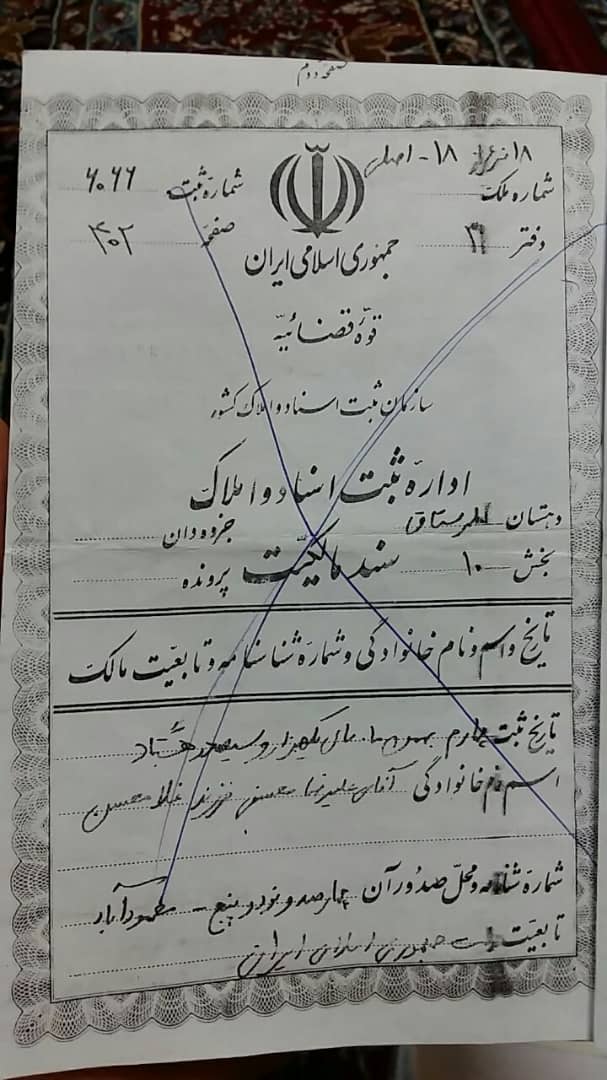 صفحه دوم
شماره ملک ۱۸ فرعی از ۱۸ - اصلی
شماره ثبت ۶۰۶۶
دفتر ۳۱ صفحه ۴۰۲
جمهوری اسلامی ایران
قوه قضائیه
سازمان ثبت اسناد و املاک کشور
اداره ثبت اسناد و املاک
دهستان اهلمرستاق جزوه دان
بخش ۱۰ سند مالکیت پرونده
تاریخ و اسم و نام خانوادگی و شماره شناسنامه و تابعیت مالک
تاریخ ثبت چهارم بهمن ماه سال یکهزار و سیصد و هشتاد
اسم و نام خانوادگی آقای علیرضا محسنی فرزند غلامحسن
شماره شناسنامه و محل صدور آن چهارصد و نود و پنج - محمودآباد
تابعیت دولت جمهوری اسلامی ایران